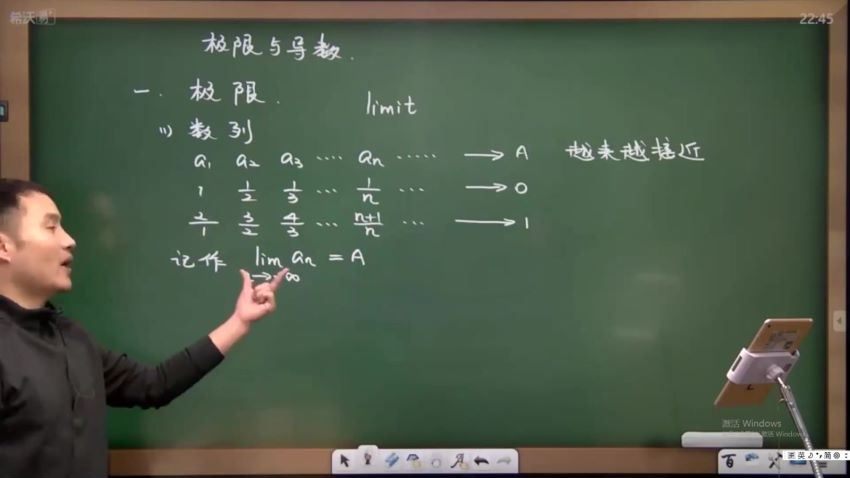 希沃
22:45
极限与导数.
一. 极限. limit
(1) 数列
a₁ a₂ a₃ ···· aₙ ····· → A 越来越接近
1 1/2 1/3 ··· 1/n ··· → 0
2/1 3/2 4/3 ··· n+1/n ··· → 1
记作 lim aₙ = A
→ ∞
激活 Windows
激活 Windows
英 简